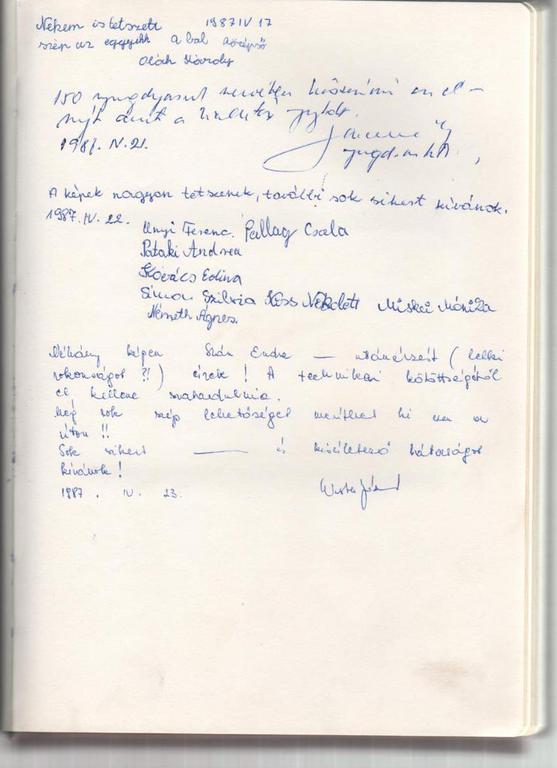 Nékem is tetszett 1987 IV 17
szép az eggyikk a bal középső
Oláh Károly
150 nyugdíjasul
élményt
1987. IV. 21.
A képek nagyon tetszenek, további sok sikert kívánok.
1987. IV. 22.
Unyi Ferenc. Pallag Csala
Pataki Andrea
Kovács Edina
Simon Szilvia Kiss Nikolett Miskei Mónika
Németh Ágnes.
Néhány képen Szán Endre — utánérzést ( lelki
rokonságot ?! ) érzek ! A technikai kötöttségétől
el kellene szabadulnia.
Még sok szép lehetőséget meríthet ki ezen az
úton !!
Sok sikert — és kísérletező bátorságot
kívánok !
1987 . IV. 23.